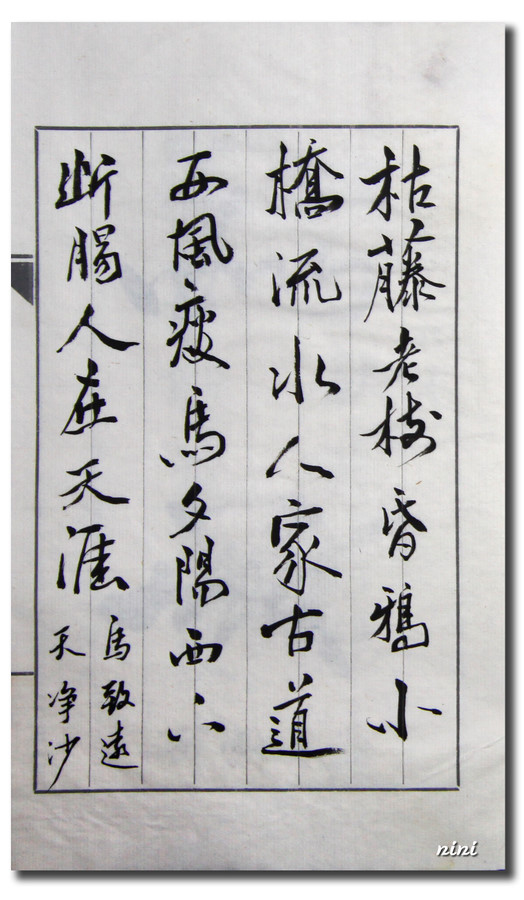 枯藤老樹昏鴉小
橋流水人家古道
西風瘦馬夕陽西下
斷腸人在天涯
馬致遠
天净沙
nini